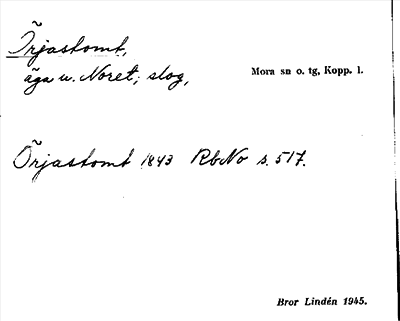 Örjastomt,
äga u. Noret; slog,
Mora sn o. tg, Kopp. l.
Örjastomt 1843 RbNo s. 517.
Bror Lindén 1945.